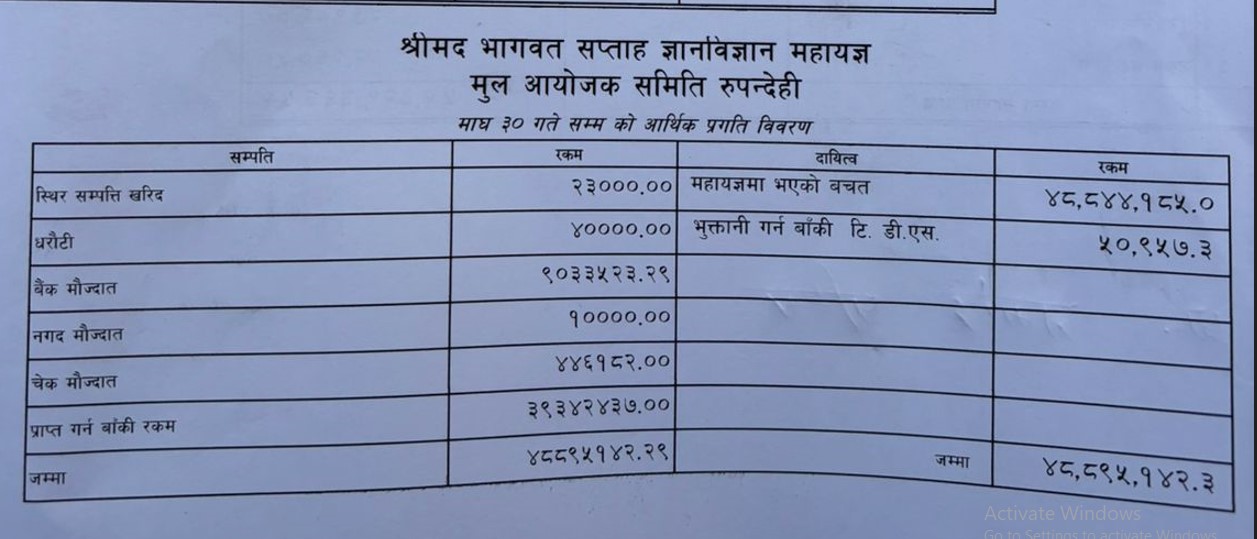 श्रीमद भागवत सप्ताह ज्ञानविज्ञान महायज्ञ
मुल आयोजक समिति रुपन्देही
माघ ३० गते सम्म को आर्थिक प्रगति विवरण
सम्पति रकम दायित्व रकम
स्थिर सम्पत्ति खरिद २३०००.०० महायज्ञमा भएको बचत ४८,८४४,१८५.०
धरौटी ४००००.०० भुक्तानी गर्न बाँकी टि. डी.एस. ५०,९५७.३
बैंक मौज्दात ९०३३५२३.२९
नगद मौज्दात १००००.००
चेक मौज्दात ४४६१८२.००
प्राप्त गर्न बाँकी रकम ३९३४२४३७.००
जम्मा ४८८९५१४२.२९ जम्मा ४८,८९५,१४२.३
Activate Windows
Go to Settings to activate Windows.